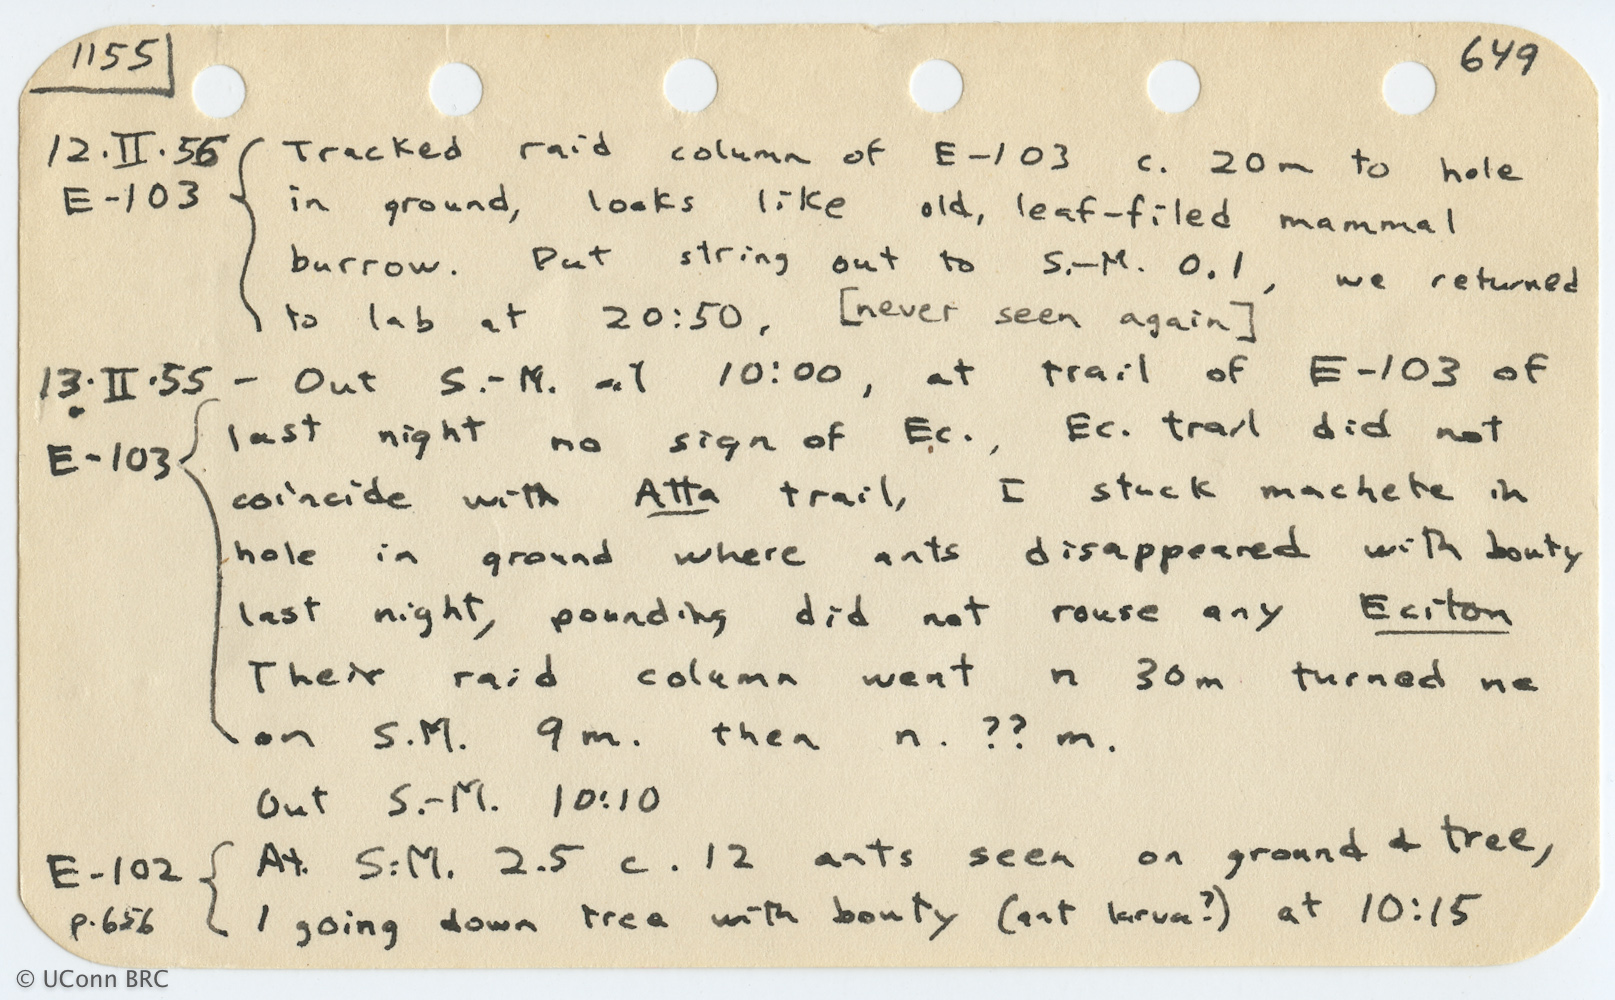 1155 649
12.II.55 Tracked raid column of E-103 c. 20m to hole
E-103 in ground, looks like old, leaf-filed mammal
burrow. Put string out to S.-M. 0.1, we returned
to lab at 20:50, [never seen again]
13.II.55 - Out S.-M. at 10:00, at trail of E-103 of
last night no sign of Ec., Ec. trail did not
E-103 coincide with Atta trail, I stuck machete in
hole in ground where ants disappeared with bouty
last night, pounding did not rouse any Eciton
Their raid column went n 30m turned ne
on S.M. 9m. then n. ?? m.
Out S.-M. 10:10
E-102 At. S.-M. 2.5 c. 12 ants seen on ground & tree,
p.656 1 going down tree with bouty (ant larva?) at 10:15
© UConn BRC